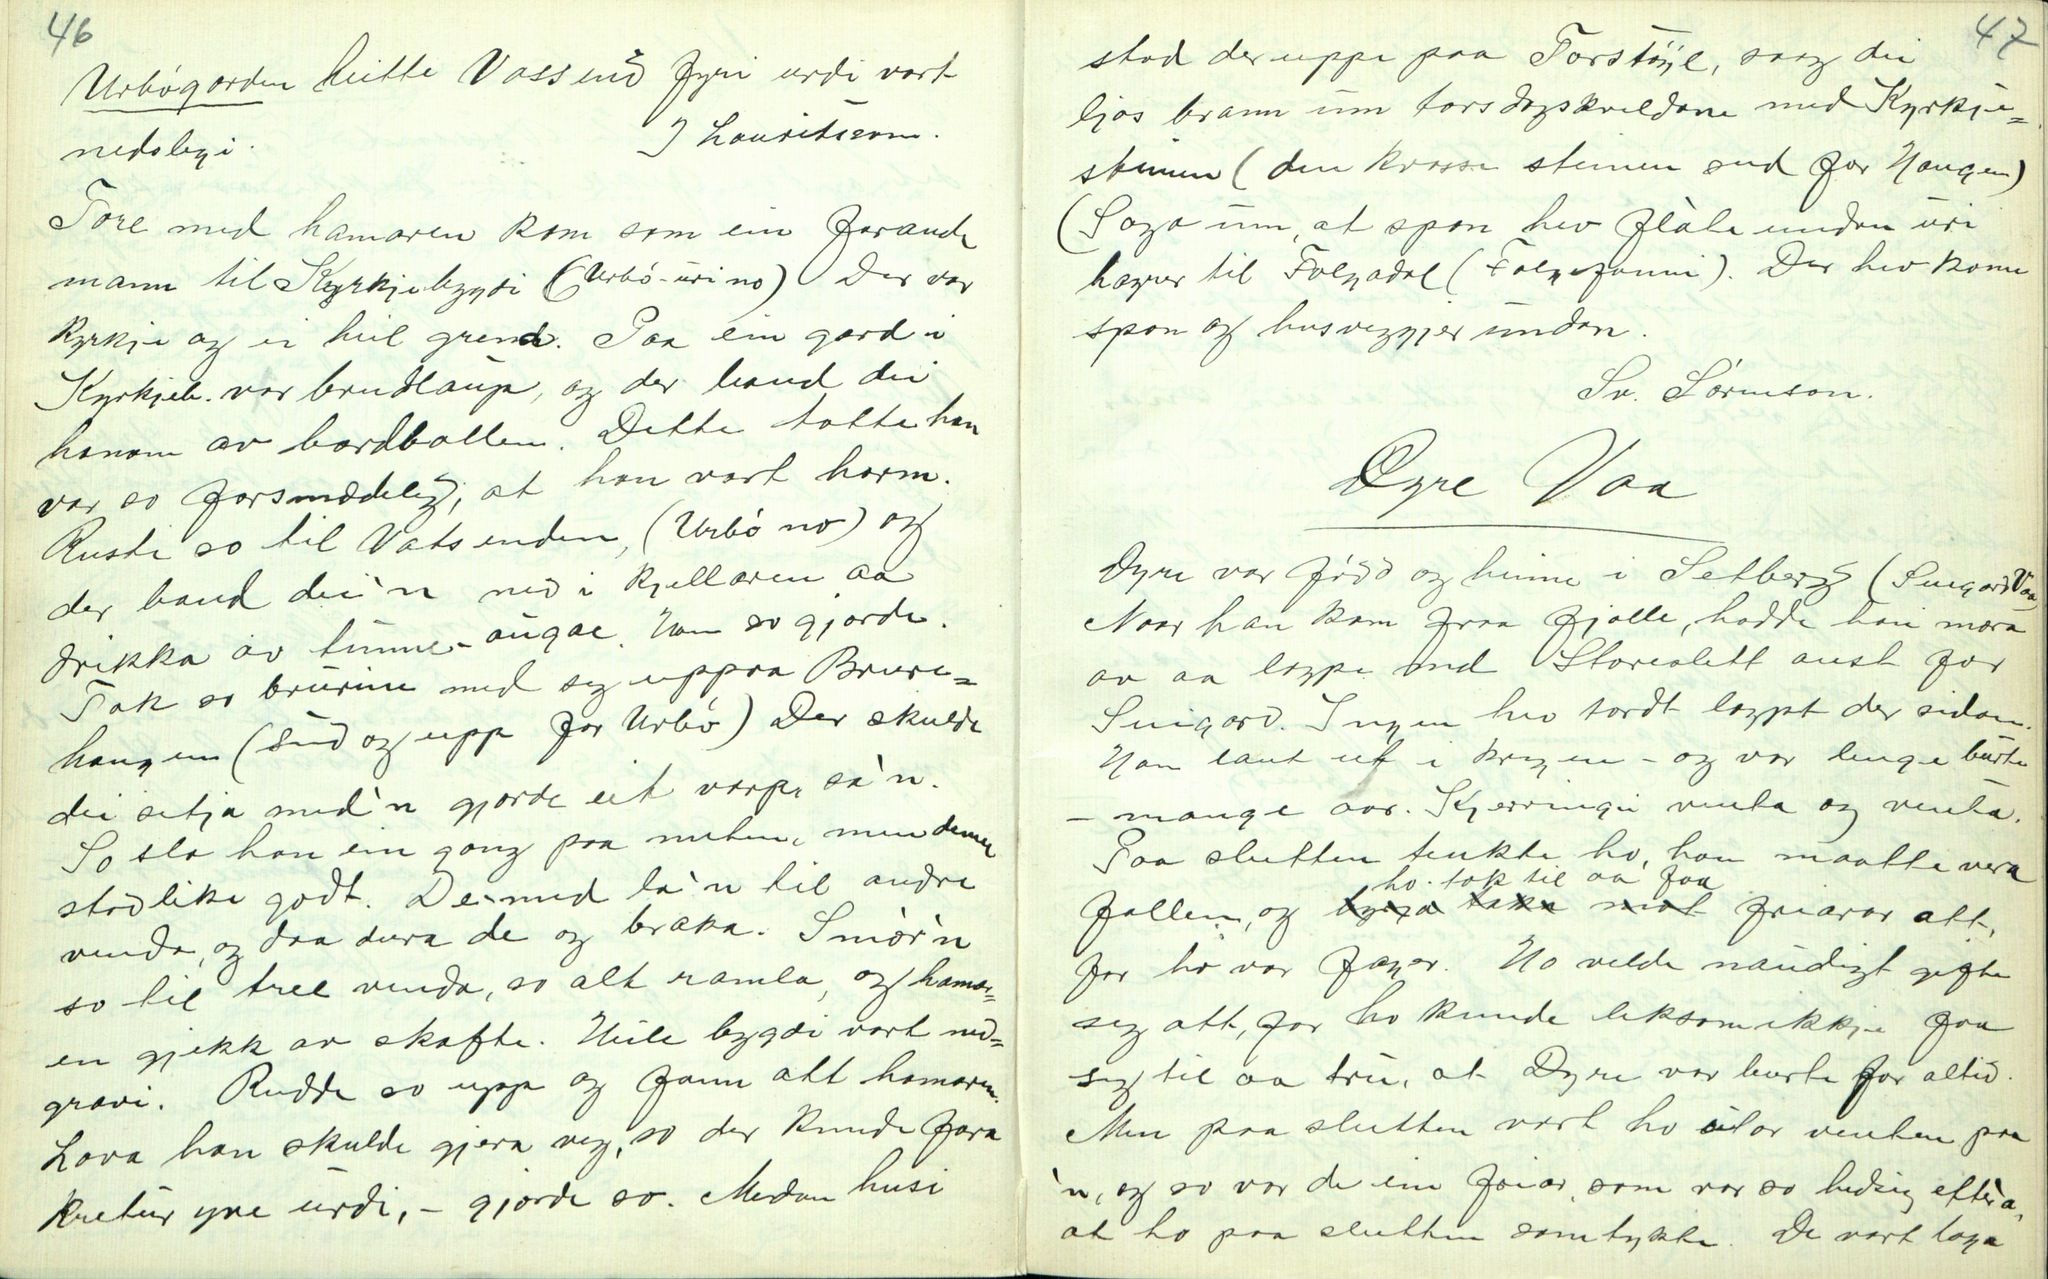 46
Urbógarden heitte Vassend fyri urdi vart
nedslegi.
J Lauritsson.
Tore med hamaren kom som ein farande
mann til Kyrkjebygdi (Urbö-uri no) Der var
kyrkje og ei heil grend. Paa ein gard i
Kyrkjeb. var brudlaup, og der baud dei
honom av bordbollen. Dette totte han
var so forsmædeleg, at han vart harm.
Ruste so til Vatsenden, (Urbó no) og
der baud dei'n ned i kjellaren aa
drikka av tunne-augae. Han so gjorde.
Tok so brurine med seg uppaa Brure=
haugen (sud og upp for Urbó) Der skulde
dei setja med'n gjorde eit varp, sa'n.
So slo han ein gong paa nuten, men denne
stod like godt. De med la'n til andre
venda, og daa dura de og braka. Smór'n
so til tree venda, so alt ramla, og hamar=
en gjekk av skafte. Heile bygdi vart ned=
gravi. Rudde so upp og fann att hamaren.
Lova han skulde gjera veg, so der kunde fara
kretur yve urdi, - gjorde so. Medan husi
47
stod der uppe paa Torstóyl, saag dei
ljos brann um torsdagskveldane med Kyrkje=
steinen (den krosse steinen sud for Haugen)
(Soga um, at spon hev flote undan uri
hegrer til Folgadal (Folgefonni). Der hev kome
spon og husveggjer undan.
Sv. Sórenson.
Dyre Vaa
Dyre var fódd og heime i Setberg (Suigard Vaa)
Naar han kom fraa fjølle, hadde han mora
av aa løype ned Storeslett aust for
Suigard. Ingen hev tordt løypt der sidan.
Han laut ut i krigen - og var lenge burte
- mange aar. Kjerringi venta og venta.
Paa slutten tenkte ho, han maatte vera
ho tok til aa faa
fallen, og byrja taka mot friarar att,
for ho var fager. Ho vilde naudigt gifte
seg att, for ho kunde liksom ikkje faa
seg til aa tru, at Dyre var burte for altid.
Men paa slutten vart ho utor venten paa
'n, og so var de ein friar, som var so hedsig efter'a,
at ho paa slutten samtykte. De vart laga